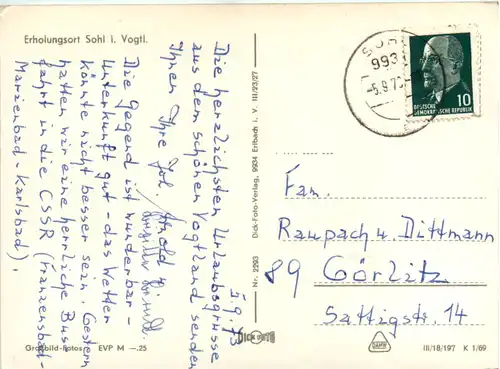 Erholungsort Sohl i. Vogtl.
5.9.73
Die herzlichsten Urlaubsgrüsse
aus dem schönen Vogtland senden
Ihnen Ihre Joh. Arnold u.
Die Gegend ist wunderbar -
Unterkunft gut - das Wetter
könnte nicht besser sein. Gestern
hatten wir eine herrliche Bus-
fahrt in die CSSR (Franzensbad-
Marienbad - Karlsbad).
Großbild-Fotos EVP M —.25
Nr. 2293 Dick-Foto-Verlag, 9934 Erlbach i. V. III/23/27
DICK FOTO
9931
-5.9.73
DEUTSCHE
DEMOKRATISCHE REPUBLIK
10
Fam.
Raupach u. Dittmann
89 Görlitz
Sattigstr. 14
III/18/197 K 1/69